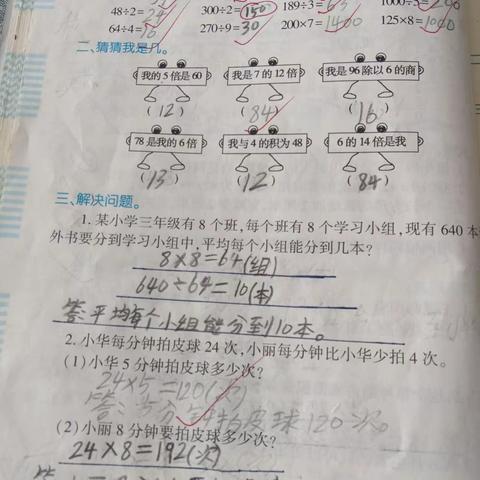 48÷2=24 300÷2=150 189÷3=63
64÷4=16 270÷9=30 200×7=1400 125×8=1000
二、猜猜我是几。
我的5倍是60 我是7的12倍 我是96除以6的商
(12) (84) (16)
78是我的6倍 我与4的积为48 6的14倍是我
(13) (12) (84)
三、解决问题。
1. 某小学三年级有8个班,每个班有8个学习小组,现有640本
外书要分到学习小组中,平均每个小组能分到几本?
8×8=64(组)
640÷64=10(本)
答:平均每个小组能分到10本。
2. 小华每分钟拍皮球24次,小丽每分钟比小华少拍4次。
(1)小华5分钟拍皮球多少次?
24×5=120(次)
答:5分钟拍皮球120次。
(2)小丽8分钟要拍皮球多少次?
24×8=192(次)